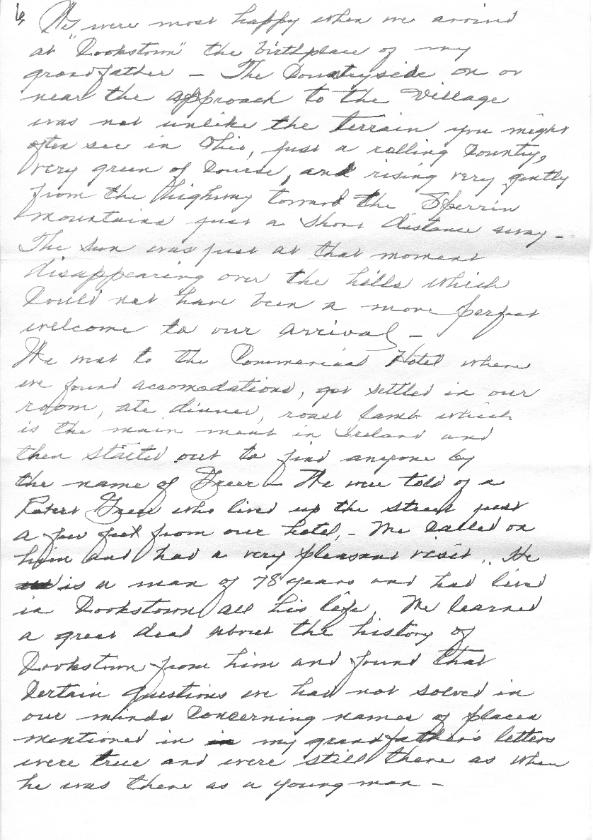 6,
We were most happy when we arrived
at "Cookstown" the birthplace of my
grandfather — The Countryside on or
near the approach to the Village
was not unlike the terrain you might
often see in Ohio, just a rolling Country,
very green of Course, and rising very gently
from the highway toward the Sperrin
mountains just a short distance away —
The sun was just at that moment
disappearing over the hills which
Could not have been a more perfect
welcome to our arrival —
We met to the Commercial Hotel where
we found accomodations, got settled in our
room, ate dinner, roast lamb which
is the main meat in Ireland and
then started out to find anyone by
the name of Greer — We were told of a
Robert Greer who lived up the street just
a few feet from our hotel, — We Called on
him and had a very pleasant visit. He
is a man of 78 years and had lived
in Cookstown all his life, We learned
a great deal about the history of
Cookstown from him and found that
Certain questions we had not solved in
our minds Concerning names of places
mentioned in my grandfather's letters
were true and were still there as when
he was there as a young man —